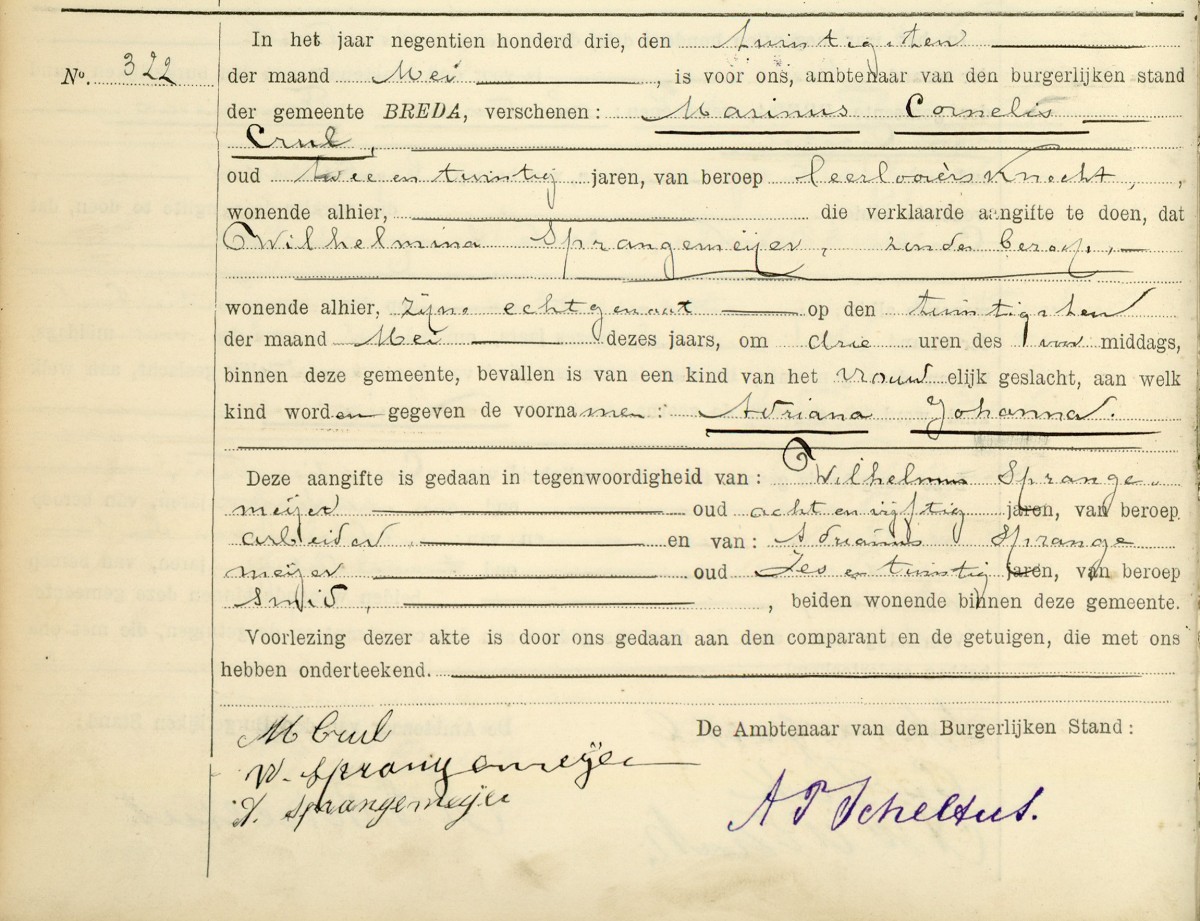 In het jaar negentien honderd drie, den twintigsten
No. 322
der maand Mei, is voor ons, ambtenaar van den burgerlijken stand
der gemeente BREDA, verschenen: Marinus Cornelis
Crul,
oud twee en twintig jaren, van beroep leerlooiersknecht,,
wonende alhier, die verklaarde aangifte te doen, dat
Wilhelmina Sprangemeijer, zonder beroep,
wonende alhier, zijne echtgenoot op den twintigsten
der maand Mei dezes jaars, om drie uren des voor middags,
binnen deze gemeente, bevallen is van een kind van het vrouw elijk geslacht, aan welk
kind worden gegeven de voornamen: Adriana Johanna.
Deze aangifte is gedaan in tegenwoordigheid van: Wilhelmus Sprange-
meijer oud acht en vijftig jaren, van beroep
arbeider en van: Adrianus Sprange
meijer oud zes en twintig jaren, van beroep
smid, , beiden wonende binnen deze gemeente.
Voorlezing dezer akte is door ons gedaan aan den comparant en de getuigen, die met ons
hebben onderteekend.
De Ambtenaar van den Burgerlijken Stand:
M Crul
W. Sprangemeijer
A. Sprangemeijer
A P Scheltus.